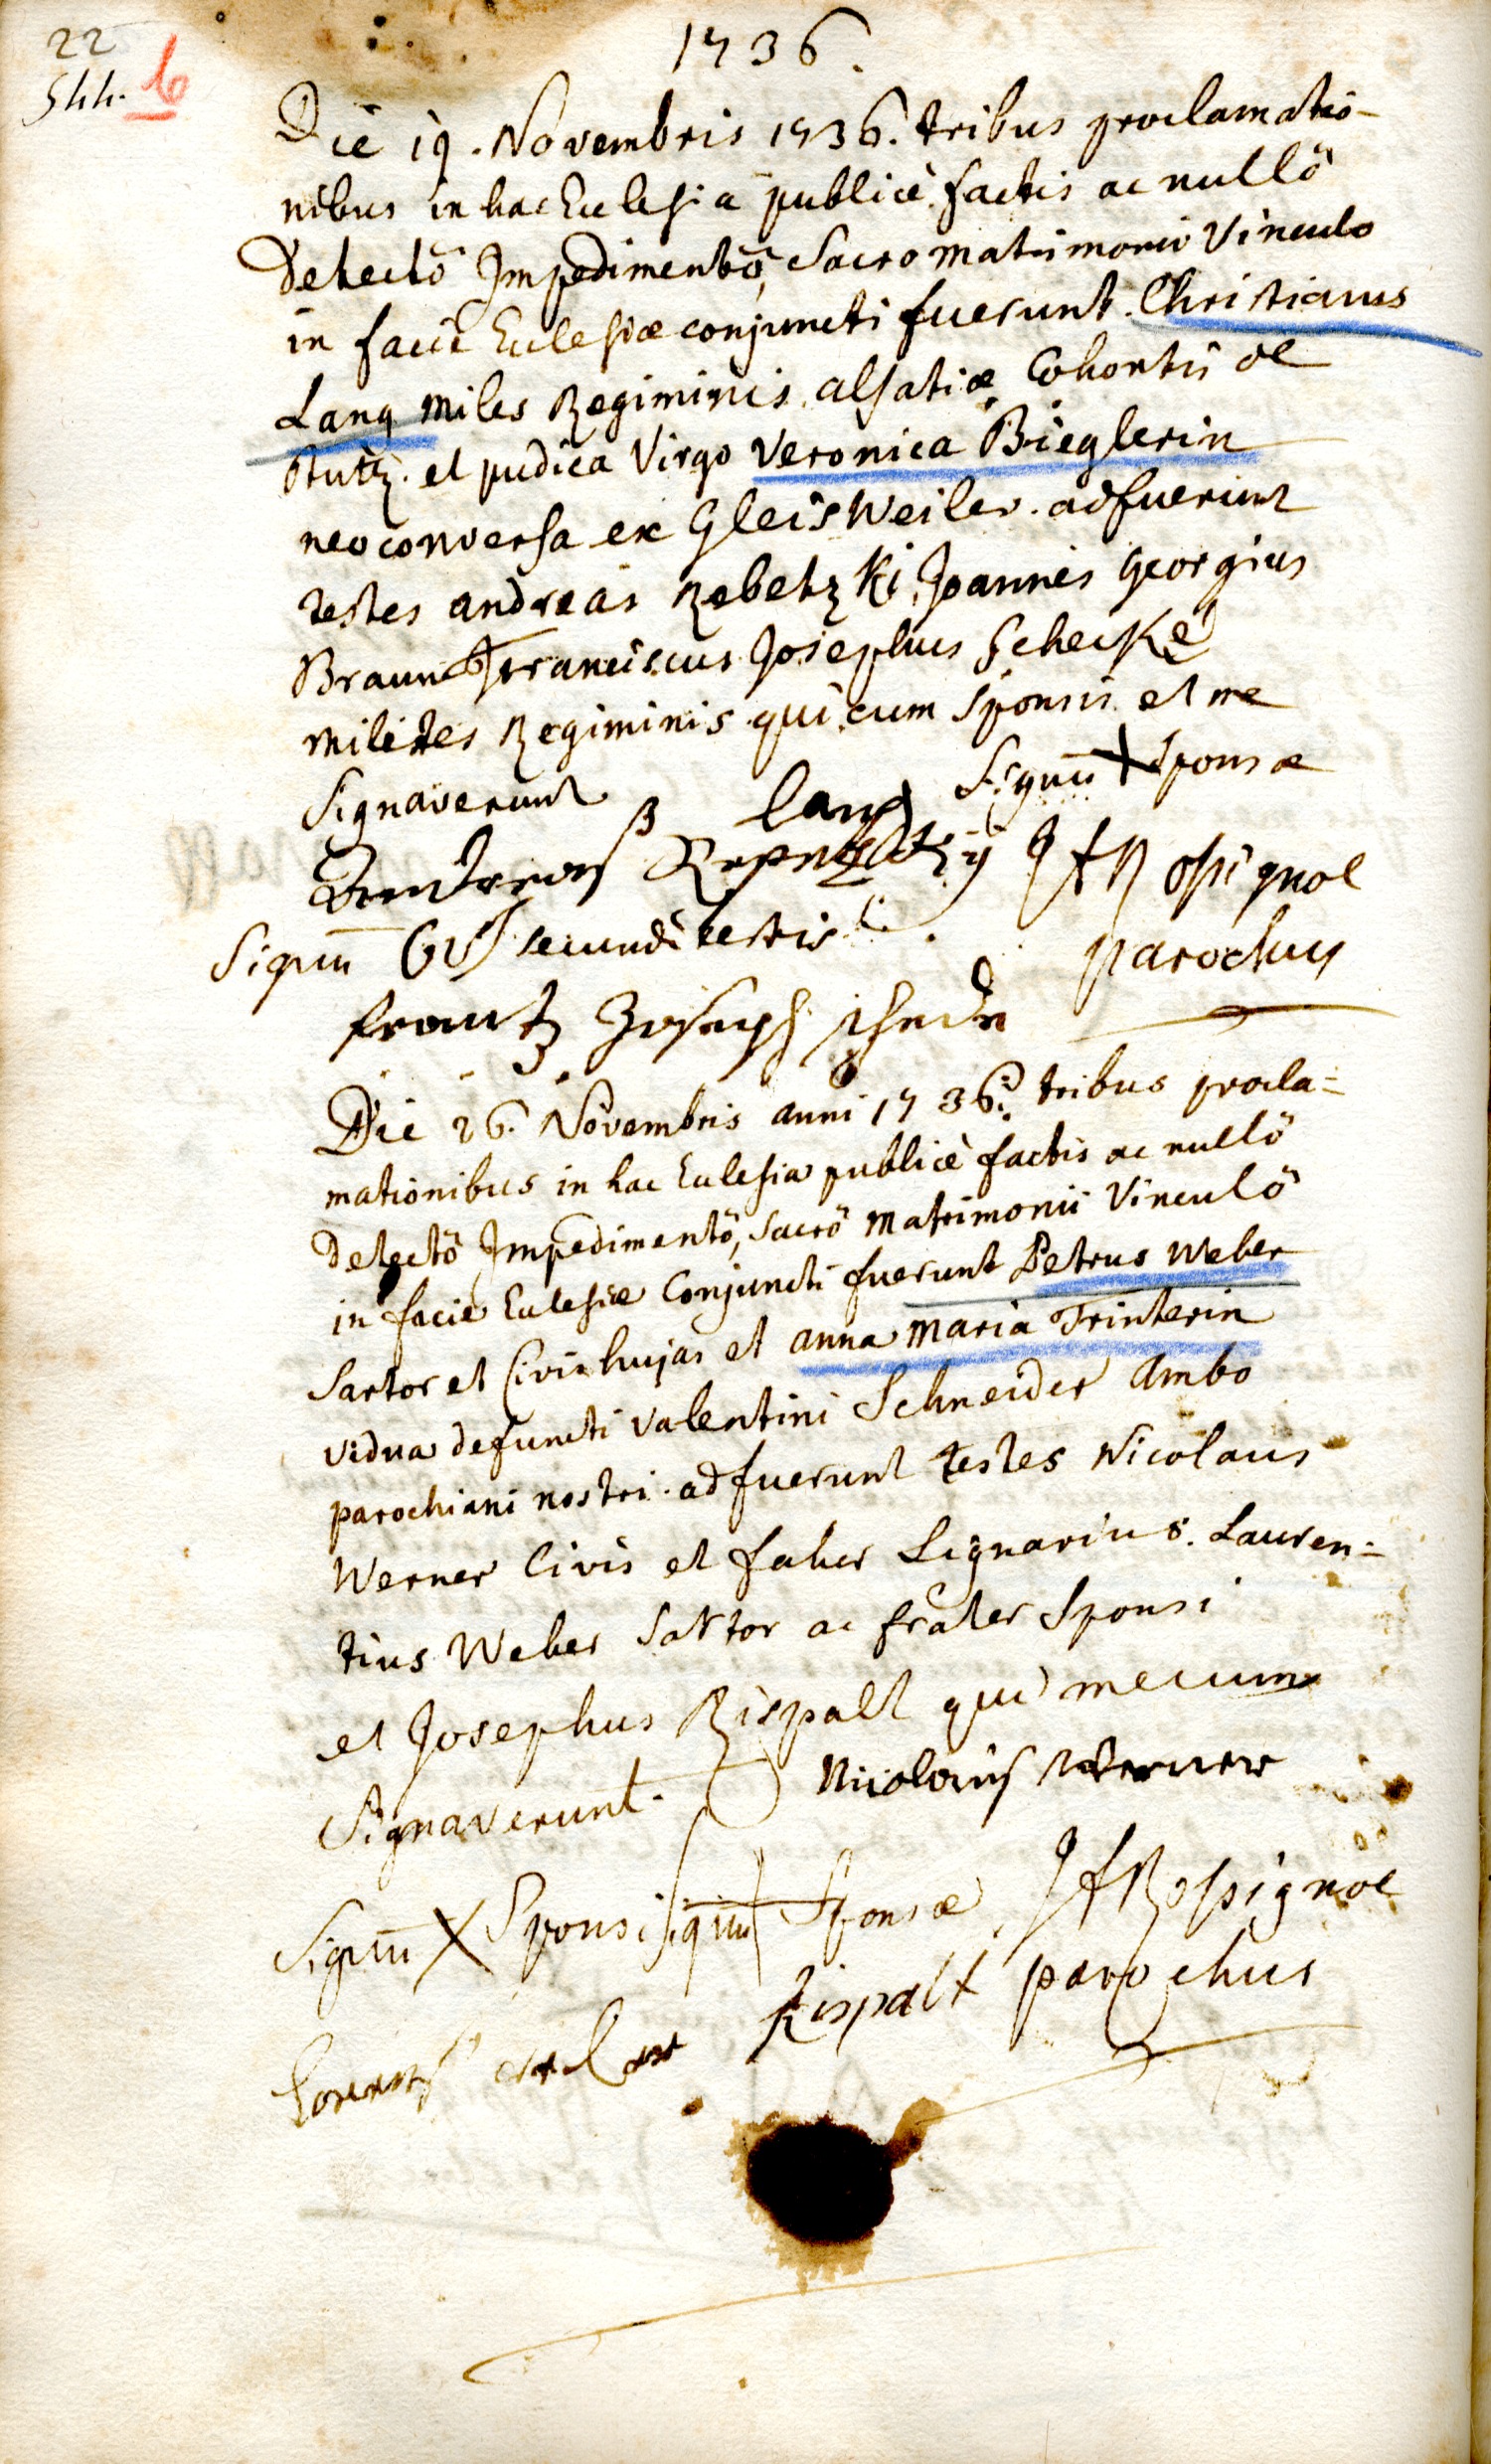 22
544. 6
1736.
Die 19. Novembris 1736. tribus proclamatio-
nibus in hac Ecclesia publicè factis ac nullô
Detectô Impedimentô, Sacro matrimonii Vinculo
in facie Ecclesiæ conjuncti fuerunt. Christianus
Lang miles Regiminis alsatiæ Cohortis de
Stutz. et pudica Virgo Veronica Bieglerin
neoconversa ex Gleisweiler. adfuerunt
testes andreas Rebetzki, Joannes Georgius
Braun Franciscus Josephus Schecke
milites Regiminis qui cum sponsis et me
Signaverunt
lang Signū X Sponsæ
Andreas
JfRossignol
Signū secundi testis
parochus
frantz Joseph
Die 26. Novembris anni 1736. tribus procla=
mationibus in hac Ecclesia publicè factis ac nullô
Detectô Impedimentô, Sacrô Matrimonii Vinculô
in facie Ecclesiæ Conjuncti fuerunt Petrus Weber
Sartor et Civis hujas et anna maria Trinterin
vidua defuncti Valentini Schneider Ambo
parochiani nostri. adfuerunt testes Nicolaus
Werner Civis et faber Lignarius. Lauren=
tius Weber Sartor ac frater Sponsi
et Josephus Rispalt qui mecum
Signaverunt. Nicolaus Werner
Signū X Sponsi Signū Sponsæ JfRossignol
Rispalt parochus